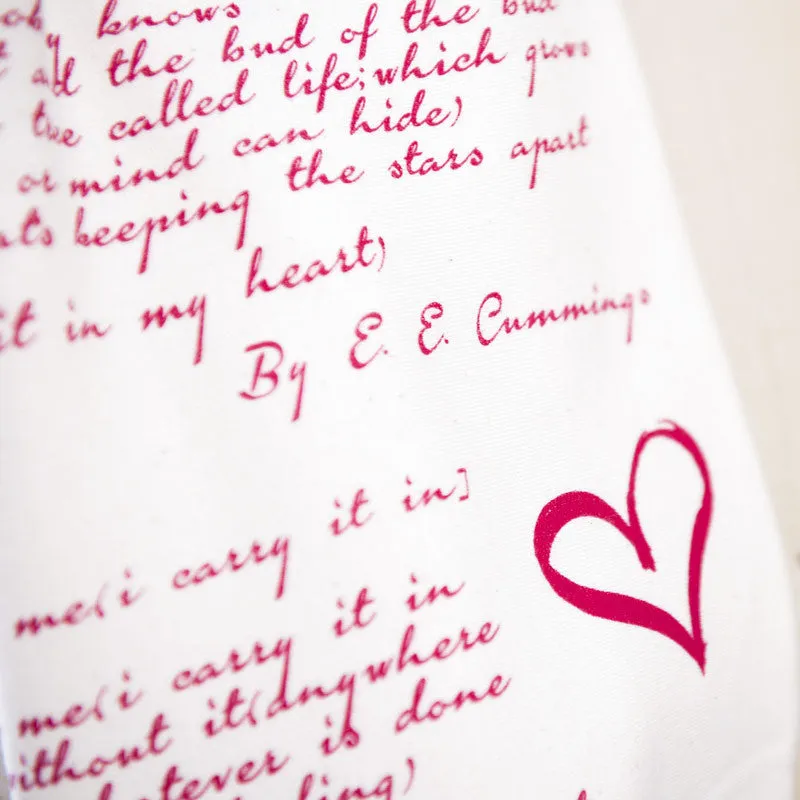 knows
the bud of the bud
called life;which grows
or mind can hide)
keeping the stars apart
it in my heart)
By E. E. Cummings
me(i carry it in]
me(i carry it in
without it(anywhere
whatever is done